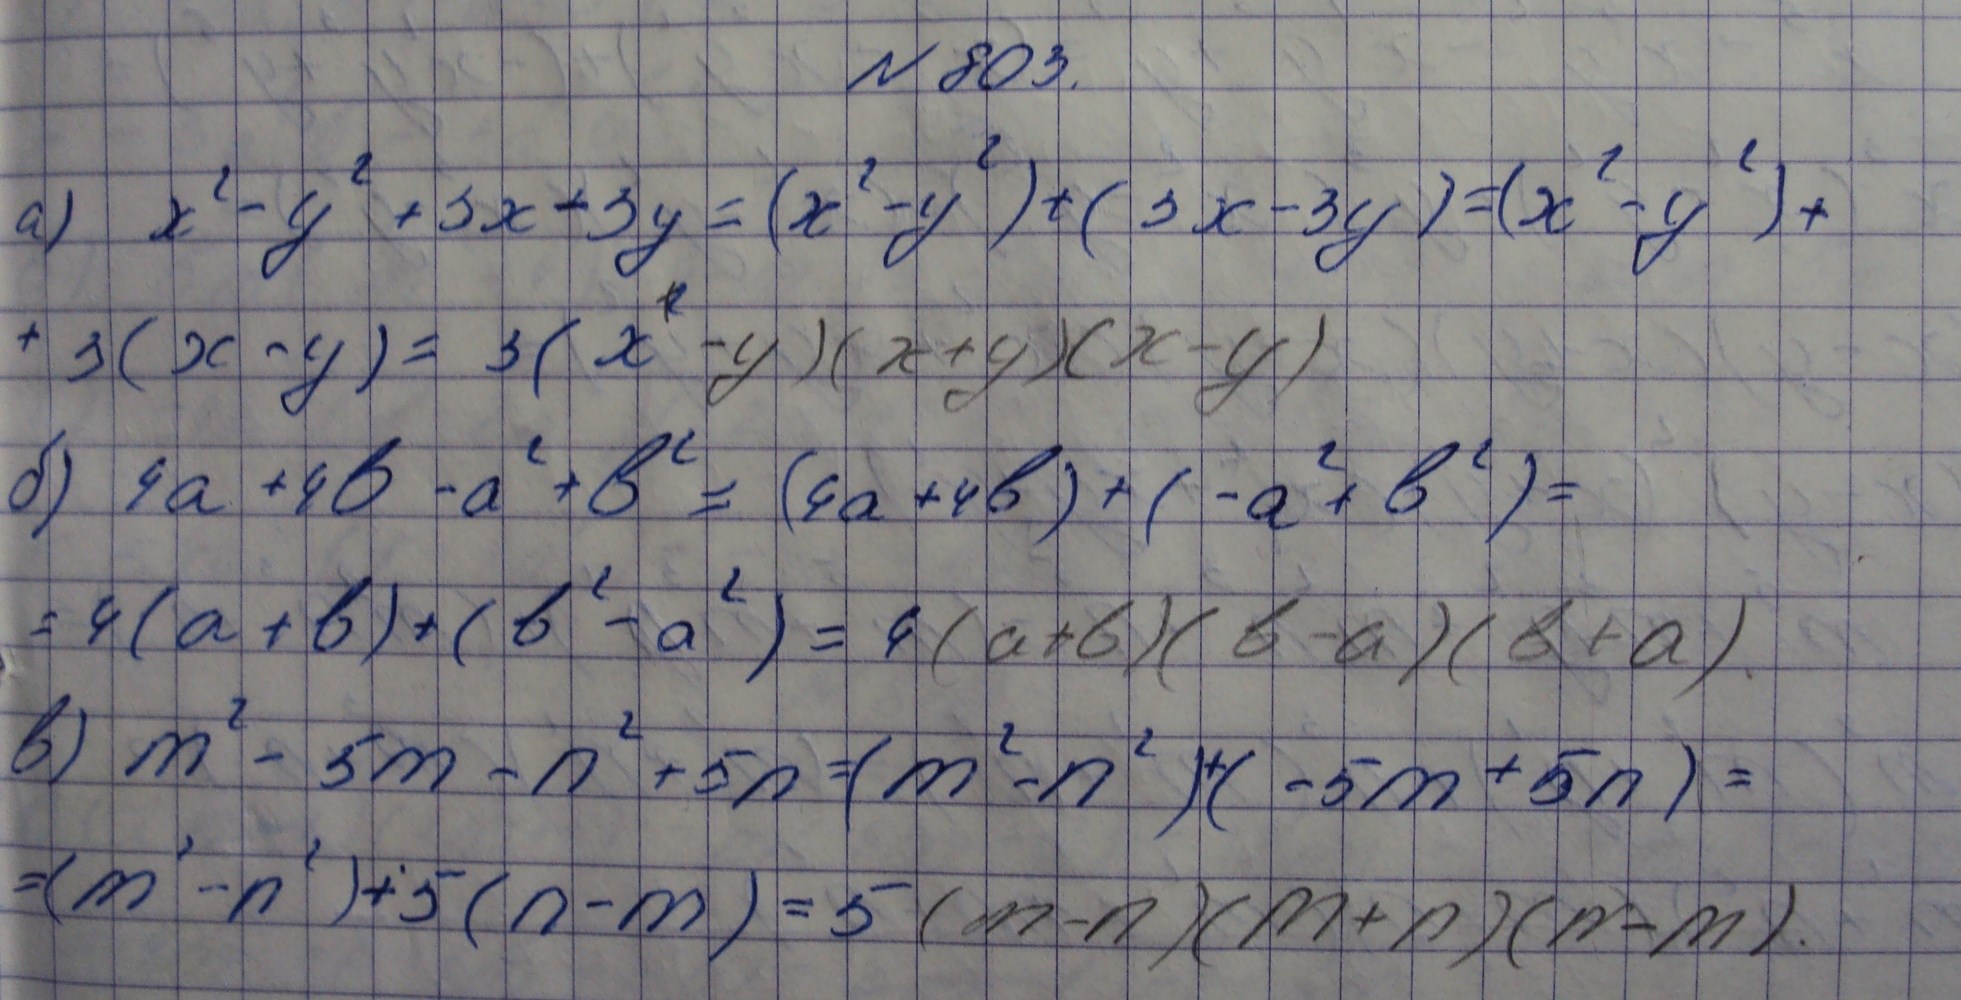 N 803.
а) x² - y² + 3x - 3y = (x² - y²) + (3x - 3y) = (x² - y²) +
+ 3(x - y) = 3(x - y)(x + y)(x - y)
б) 4a + 4b - a² + b² = (4a + 4b) + (-a² + b²) =
= 4(a + b) + (b² - a²) = 4(a + b)(b - a)(b + a).
в) m² - 5m - n² + 5n = (m² - n²) + (-5m + 5n) =
= (m² - n²) + 5(n - m) = 5(m - n)(m + n)(n - m).